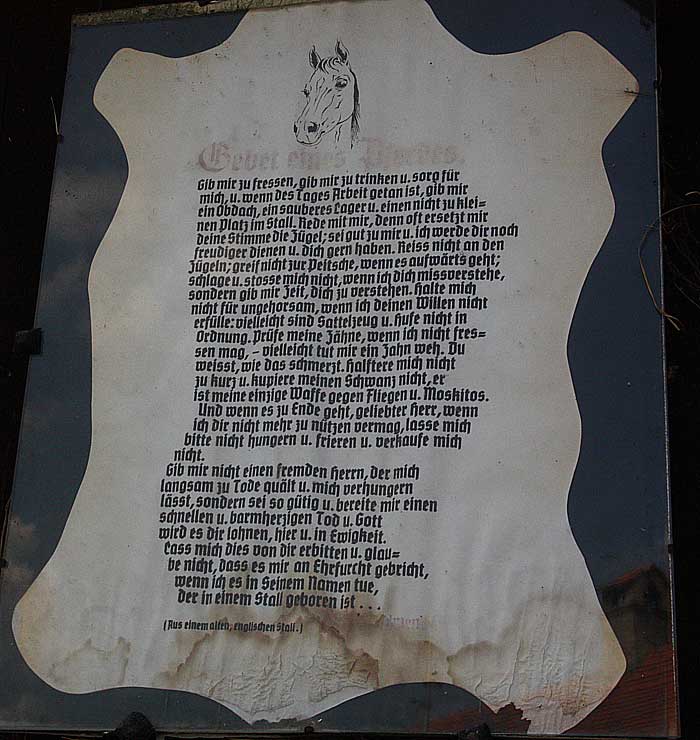 Gebet eines Pferdes.
Gib mir zu fressen, gib mir zu trinken u. sorg für
mich, u. wenn des Tages Arbeit getan ist, gib mir
ein Obdach, ein sauberes Lager u. einen nicht zu klei=
nen Platz im Stall. Rede mit mir, denn oft ersetzt mir
deine Stimme die Zügel; sei gut zu mir u. ich werde dir noch
freudiger dienen u. dich gern haben. Reiss nicht an den
Zügeln; greif nicht zur Peitsche, wenn es aufwärts geht;
schlage u. stosse mich nicht, wenn ich dich missverstehe,
sondern gib mir Zeit, dich zu verstehen. Halte mich
nicht für ungehorsam, wenn ich deinen Willen nicht
erfülle: vielleicht sind Sattelzeug u. Hufe nicht in
Ordnung. Prüfe meine Zähne, wenn ich nicht fres=
sen mag, – vielleicht tut mir ein Zahn weh. Du
weisst, wie das schmerzt. Halftere mich nicht
zu kurz u. kupiere meinen Schwanz nicht, er
ist meine einzige Waffe gegen Fliegen u. Moskitos.
Und wenn es zu Ende geht, geliebter Herr, wenn
ich dir nicht mehr zu nützen vermag, lasse mich
bitte nicht hungern u. frieren u. verkaufe mich
nicht.
Gib mir nicht einen fremden Herrn, der mich
langsam zu Tode quält u. mich verhungern
lässt, sondern sei so gütig u. bereite mir einen
schnellen u. barmherzigen Tod u. Gott
wird es dir lohnen, hier u. in Ewigkeit.
Lass mich dies von dir erbitten u. glau=
be nicht, dass es mir an Ehrfurcht gebricht,
wenn ich es in Seinem Namen tue,
der in einem Stall geboren ist . . .
(Aus einem alten, englischen Stall.)